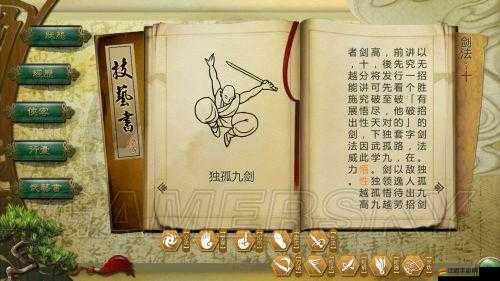 狀態
經歷
俠客
行囊
武藝書
技藝書
独孤九剑
剑法 十
以无招胜有招的剑法。独孤九剑
讲究一个「破」字，在敌人出招
前先行看破他的套路，以逸待劳
，後发先至，对独孤九剑领悟越
高，将可破尽天下武学。独孤九
剑十分讲究悟性，因此悟性越高
者，越能施展出剑法威力。
GAMERSKY